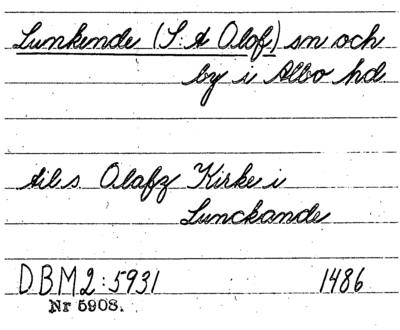 Lunkende (S:t Olof) sn och
by i Albo hd.
til s Olafz Kirke i
Lunckande
DBM2:5931 1486
Nr 5908.